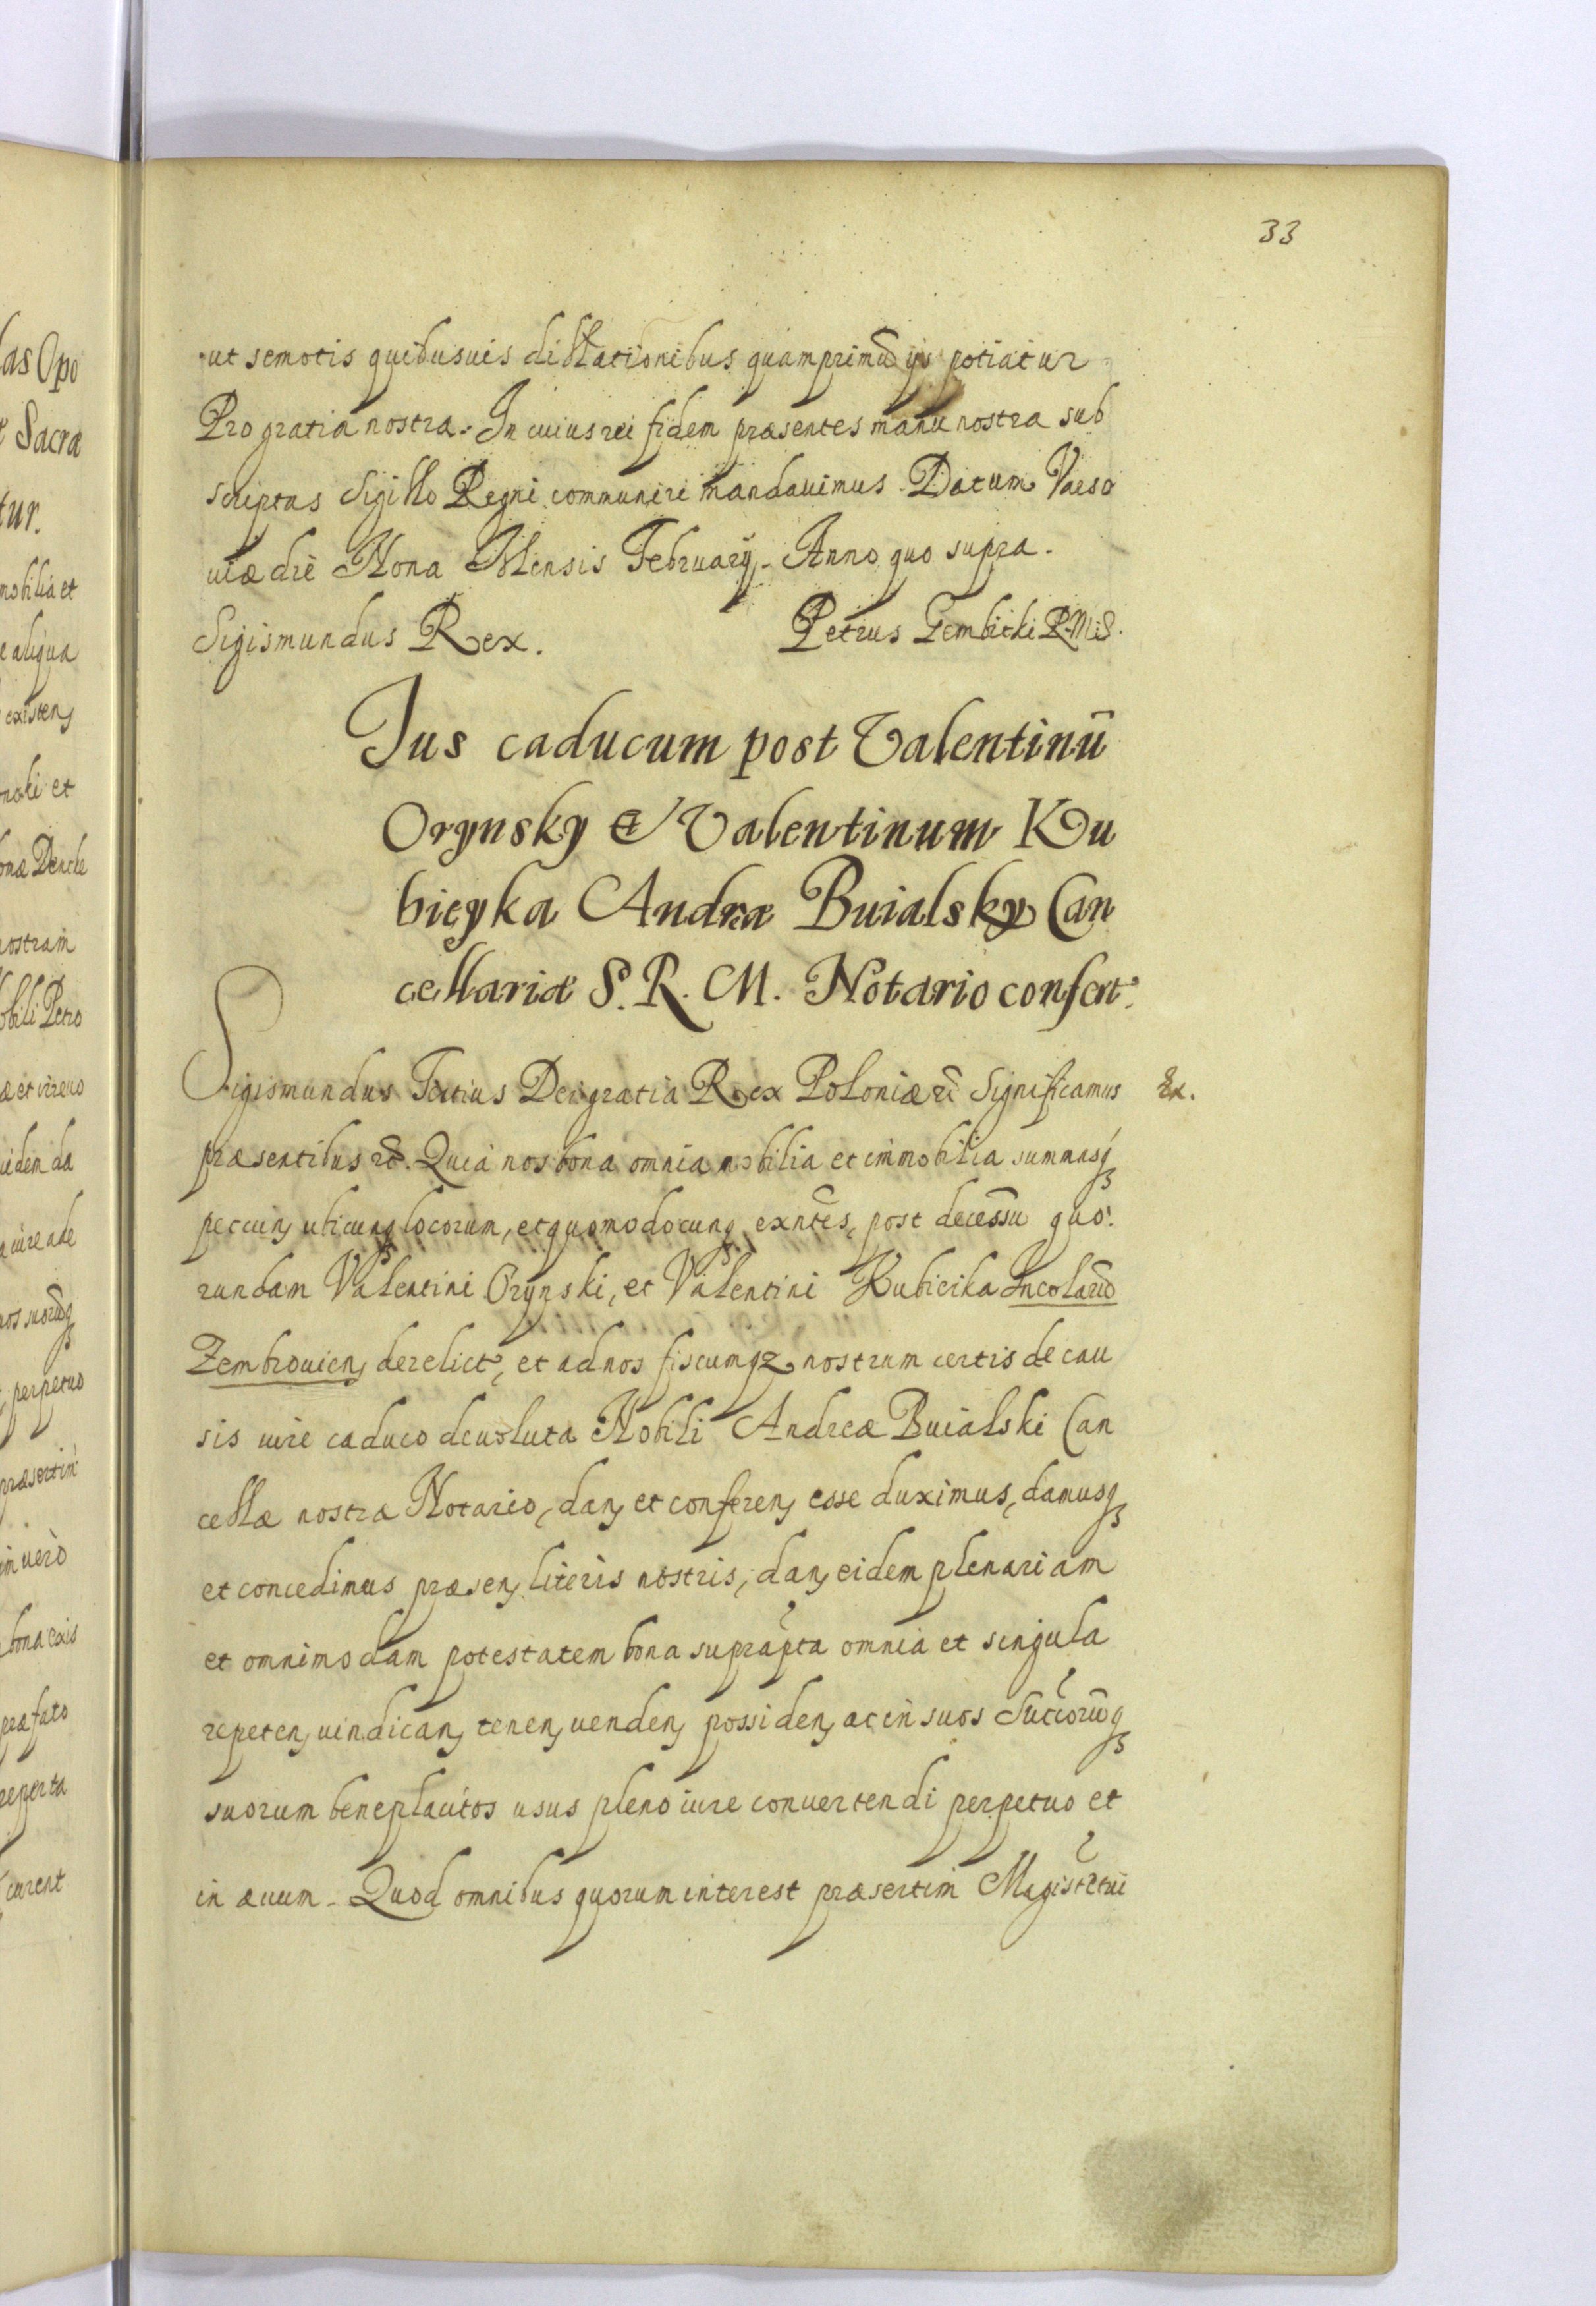 33
ut semotis quibusuis dillationibus quamprimū ijs potiatur
Pro gratia nostra. In cuius rei fidem præsentes manu nostra sub
scriptas Sigillo Regni communiri mandauimus. Datum Varso
uiæ die Nona Mensis Februarij. Anno quo supra.
Sigismundus Rex. Petrus Gembitki R.M.S.
Jus caducum post Valentinū
Orynsky et Valentinum Ku
bieyka Andreæ Buialsky Can
cellariæ S. R. M. Notario confert.
Sigismundus Tertius Dei gratia Rex Poloniæ etc̄ Significamus Ex.
præsentibus etc̄. Quia nos bona omnia mobilia et immobilia summasq̨
peccun̨ ubicunq̨ locorum, et quomodocunq̨ exn̄tes, post decessū quo
rundam Valentini Orynski, et Valentini Kubieika Incolarū
Zembrouien̨ derelict, et ad nos fiscumqz nostrum certis de cau
sis iure caduco deuoluta Nobili Andreæ Buialski Can
cellæ nostræ Notario, dan̨ et conferen̨ esse duximus, damusq̨
et concedimus præsen̨ literis nostris, dan̨ eidem plenariam
et omnimodam potestatem bona suprap̄ta omnia et singula
repeten̨ uindican̨ tenen̨ uenden̨ possiden̨ ac in suos Succ̄orūq̨
suorum beneplacitos usus pleno iure conuertendi perpetuo et
in æuum. Quod omnibus quorum interest præsertim Magistr̄tui
las Opo
Sacra
tur.
mobilia et
e aliqua
existen̨
nski et
onæ Dencle
nostram
obili Petro
æ et vireuo
uidenda
iure ade
os suorūq̨
perpetuo
præsertim
im uerò
bona exis
præfato
reperta
curent